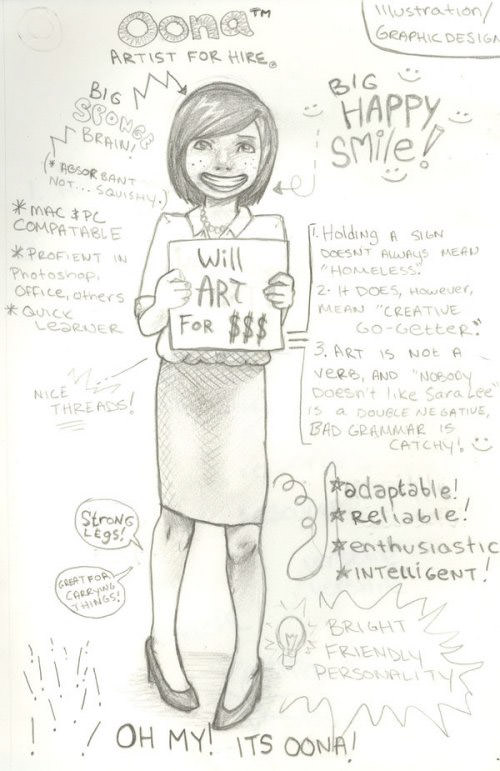 Oona™
ARTIST FOR HIRE.
Illustration/
GRAPHIC DESIGN
BIG
SPONGE
BRAIN!
(*ABSORBANT
NOT... SQUISHY.)
* MAC & PC
COMPATABLE
* PROFIENT IN
Photoshop,
OFFICE, others
* QUICK
LEARNER
NICE
THREADS!
BIG
HAPPY
SMILE!
Will
ART
FOR $$$
1. Holding A SIGN
DOESN'T ALWAYS MEAN
"HOMELESS."
2. IT DOES, However,
MEAN "CREATIVE
GO-GETTER."
3. ART IS NOT A
VERB, AND "NOBODY
DOESN'T LIKE Sara Lee"
IS A DOUBLE NEGATIVE,
BAD GRAMMAR IS
CATCHY!
*adaptable!
*Reliable!
*enthusiastic
*INTELLIGENT!
STRONG
LEGS!
GREAT FOR
CARRYING
THINGS!
BRIGHT
FRIENDLY
PERSONALITY
OH MY! ITS OONA!